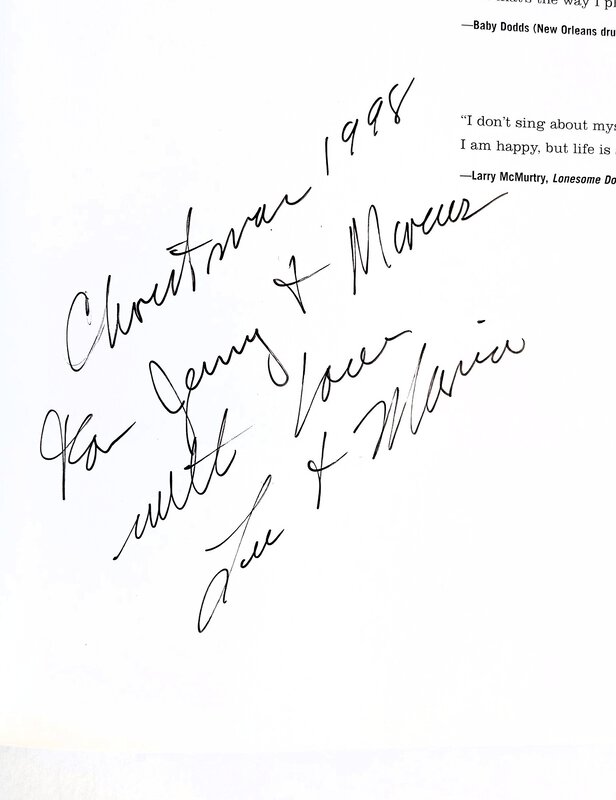 that's the way I pl
—Baby Dodds (New Orleans dru
"I don't sing about mys
I am happy, but life is
—Larry McMurtry, Lonesome Do
Christmas 1998
For Jenny & Marcus
with love
Lee & Maria